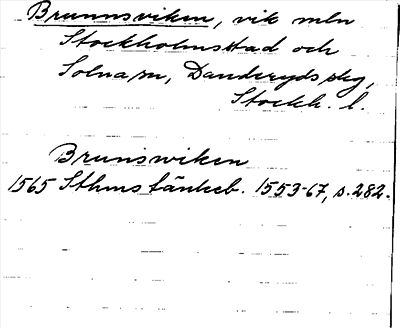 Brunnsviken, vik mln
Stockholms stad och
Solna sn, Danderyds skg,
Stockh. l.
Brunswiken
1565 Sthms tänkeb. 1553-67, s. 282.